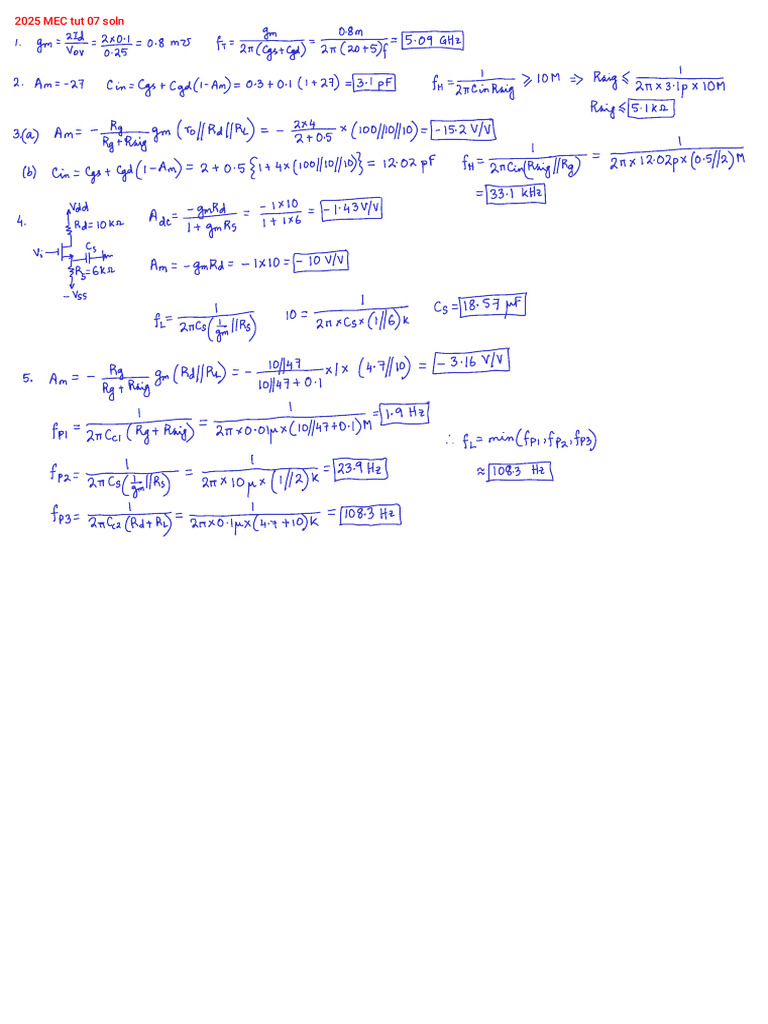 2025 MEC tut 07 soln
1. gm = 2Id/Vov = 2×0.1/0.25 = 0.8 m℧ fT = gm/2π(Cgs+Cgd) = 0.8m/2π(20+5)f = 5.09 GHz
2. Am = -27 Cin = Cgs + Cgd(1-Am) = 0.3 + 0.1 (1+27) = 3.1 pF fH = 1/2πCinRsig ⩾ 10M => Rsig ≤ 1/2π×3.1p×10M
Rsig ≤ 5.1kΩ
3.(a) Am = - Rg/Rg+Rsig gm (ro//Rd//RL) = - 2×4/2+0.5 × (100//10//10) = -15.2 V/V
(b) Cin = Cgs + Cgd(1-Am) = 2 + 0.5{1+4×(100//10//10)} = 12.02 pF fH = 1/2πCin(Rsig//Rg) = 1/2π×12.02p×(0.5//2)M
= 33.1 kHz
4. Vdd
Rd=10kΩ
Vi
Cs
Rs=6kΩ
-Vss
Adc = -gmRd/1+gmRs = -1×10/1+1×6 = -1.43V/V
Am = -gmRd = -1×10 = -10 V/V
fL = 1/2πCs(1/gm//Rs) 10 = 1/2π×Cs×(1//6)k Cs = 18.57 μF
5. Am = - Rg/Rg+Rsig gm (Rd//RL) = - 10//47/10//47+0.1 ×1× (4.7//10) = -3.16 V/V
fP1 = 1/2πCc1(Rg+Rsig) = 1/2π×0.01μ×(10//47+0.1)M = 1.9 Hz
∴ fL = min(fP1, fP2, fP3)
≈ 108.3 Hz
fP2 = 1/2πCs(1/gm//Rs) = 1/2π×10μ×(1//2)k = 23.9 Hz
fP3 = 1/2πCc2(Rd+RL) = 1/2π×0.1μ×(4.7+10)k = 108.3 Hz